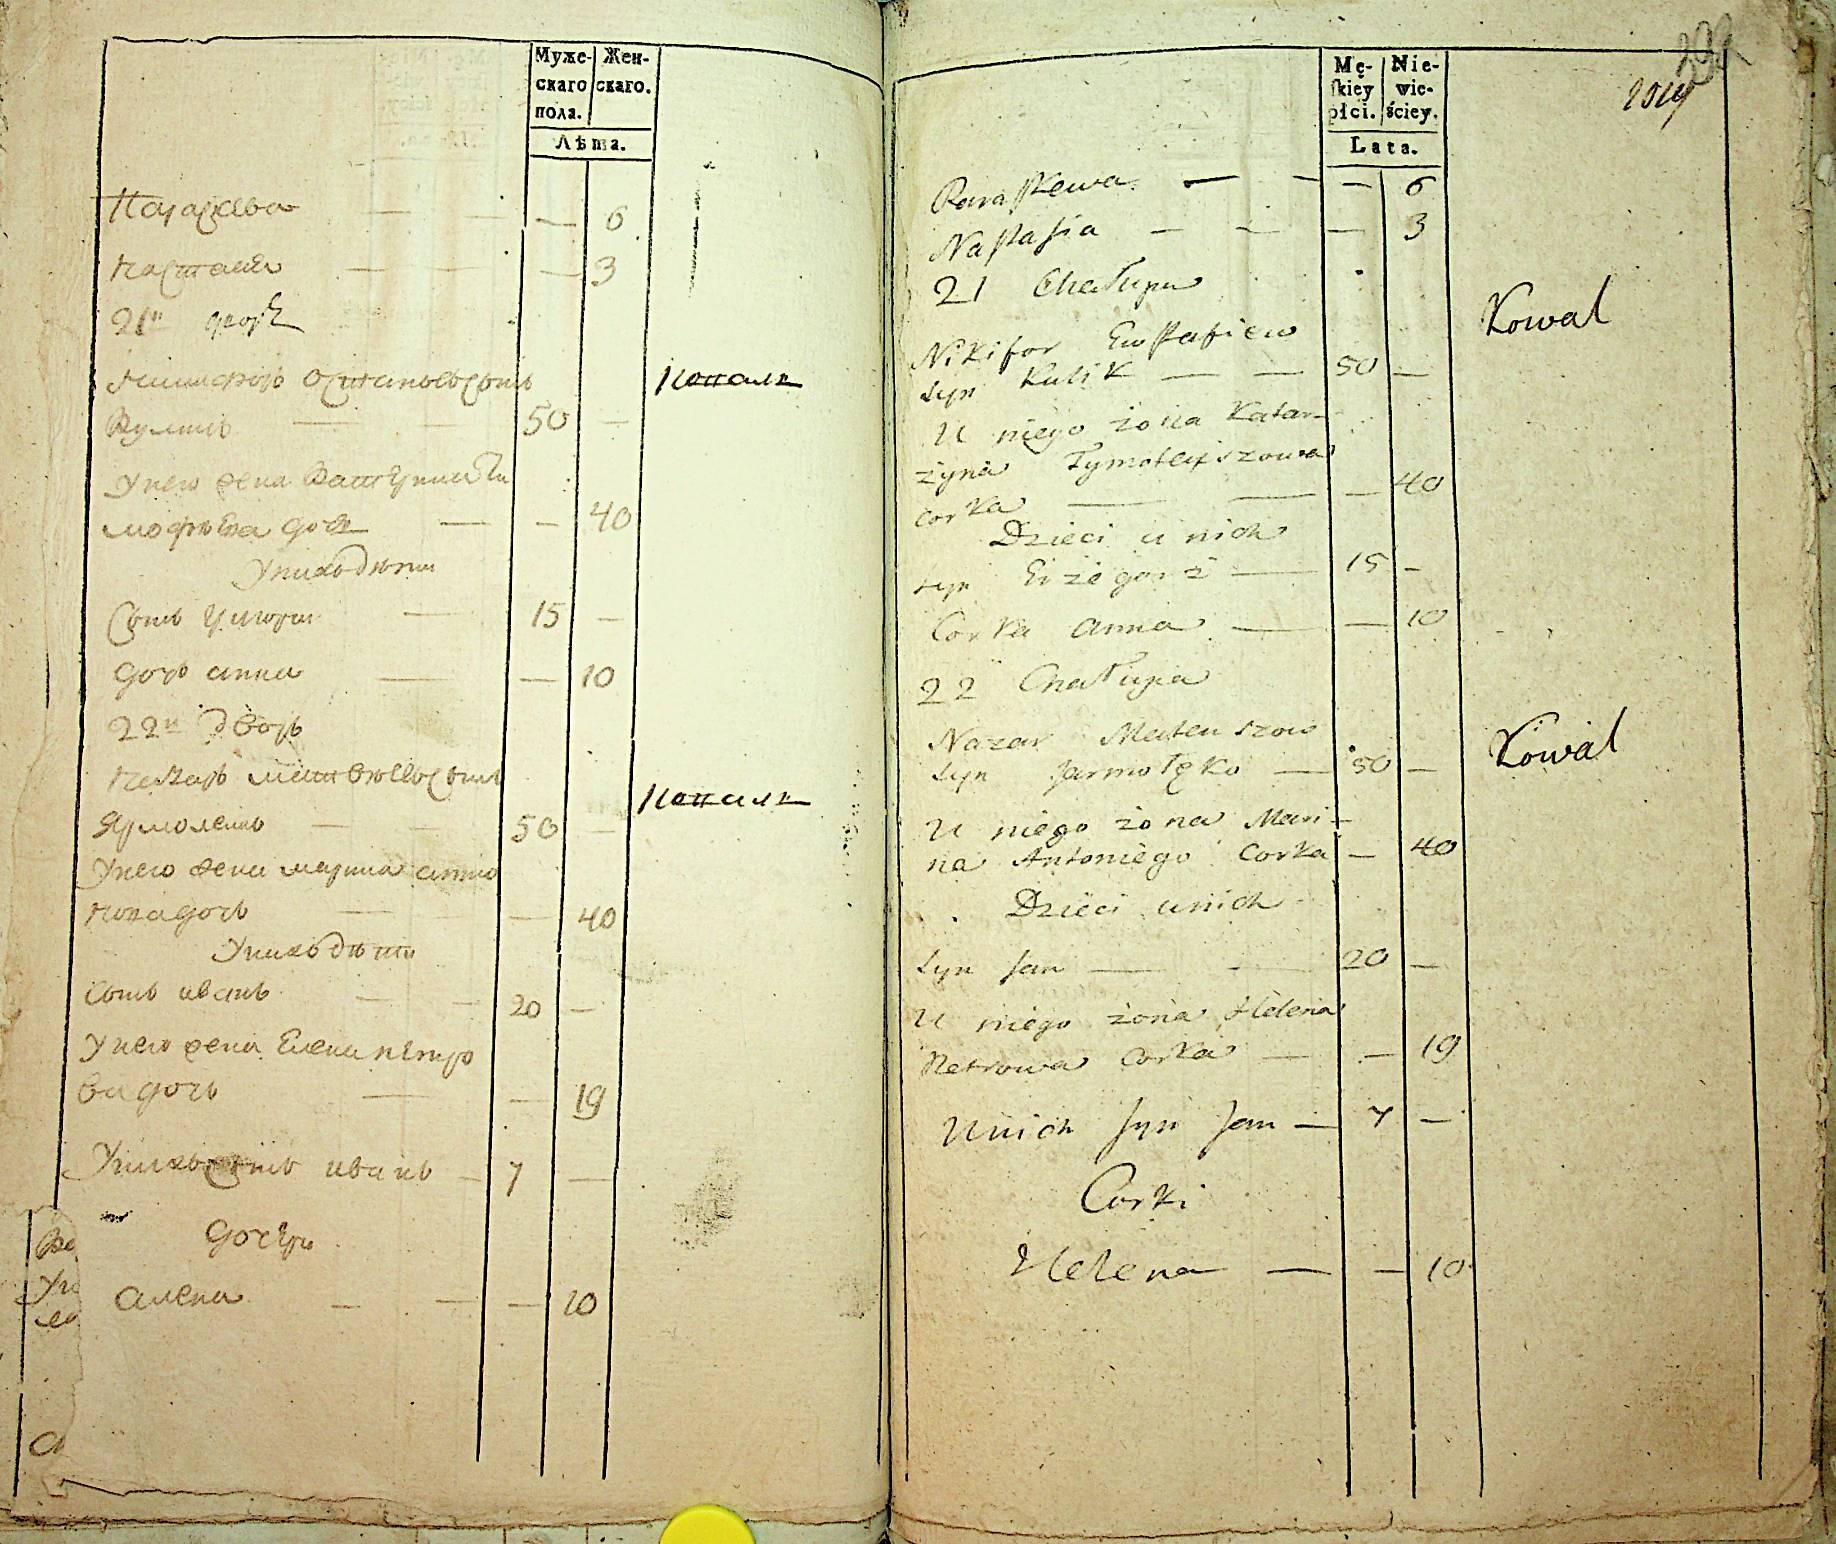 Муже- Жен-
скаго скаго.
пола.
Лѣта.
Параскева — — — 6
Настасия — — — 3
21й дворъ
Никифоръ Остапьевъ сынъ Коваль
Куликъ — — 50 —
У него жена Катерина Ти
мофѣева дочь — — 40
У нихъ дѣти
Сынъ Григори — 15 —
Дочь анна — — 10
22й дворъ
Назаръ матвѣевъ сынъ
Ярмоленко — — 50 — Коваль
У него жена марина анто
нова дочь — — 40
У нихъ дѣти
Сынъ иванъ — — 20 —
У него жена Елена петро
ва дочь — — 19
У нихъ сынъ иванъ — 7 —
Дочери
алена — — — 10
Mę- Nie-
skiey wie-
płci. ściey.
Lata.
Paraskewa — — — 6
Nastasia — — — 3
21 Chałupa
Nikifor Ewstafiew Kowal
syn Kulik — — 50 —
U niego żona Katar-
żyna Tymoteyszowa
corka — — — 40
Dzieci u nich
syn Grzegorz — 15 —
Corka anna — — 10
22 Chałupa
Nazar Mateuszow
syn Jarmołęko — 50 — Kowal
U niego żona Mari-
na Antoniego Corka — 40
Dzieci u nich
syn Jan — — 20 —
U niego żona Helena
Petrowa Corka — — 19
U nich syn Jan — 7 —
Corki
Helena — — 10